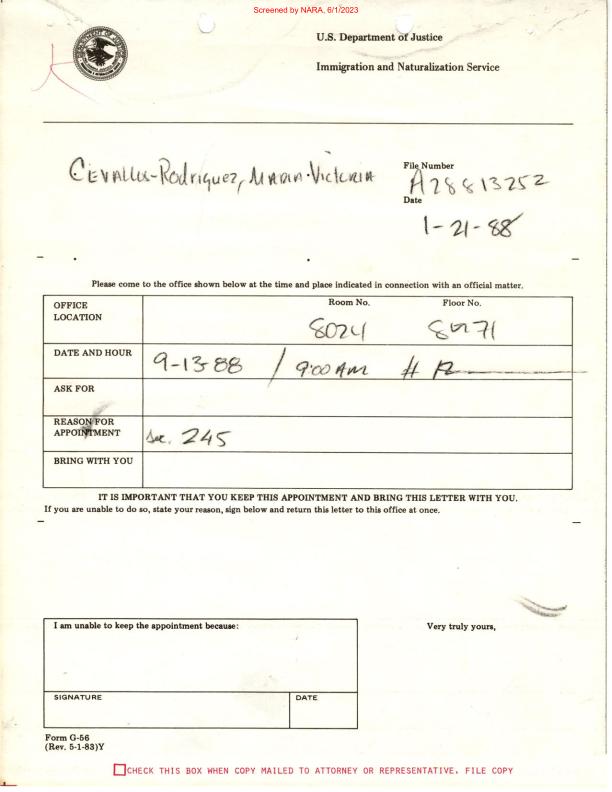 Screened by NARA, 6/1/2023
U.S. Department of Justice
Immigration and Naturalization Service
Cevallos-Rodriguez, Maria-Victoria
File Number
A28813252
Date
1-21-88
Please come to the office shown below at the time and place indicated in connection with an official matter.
OFFICE LOCATION
Room No.
Floor No.
8024
DATE AND HOUR
9-13-88 / 9:00 AM #
ASK FOR
REASON FOR APPOINTMENT
Sec. 245
BRING WITH YOU
IT IS IMPORTANT THAT YOU KEEP THIS APPOINTMENT AND BRING THIS LETTER WITH YOU.
If you are unable to do so, state your reason, sign below and return this letter to this office at once.
I am unable to keep the appointment because:
Very truly yours,
SIGNATURE
DATE
Form G-56
(Rev. 5-1-83)Y
CHECK THIS BOX WHEN COPY MAILED TO ATTORNEY OR REPRESENTATIVE. FILE COPY